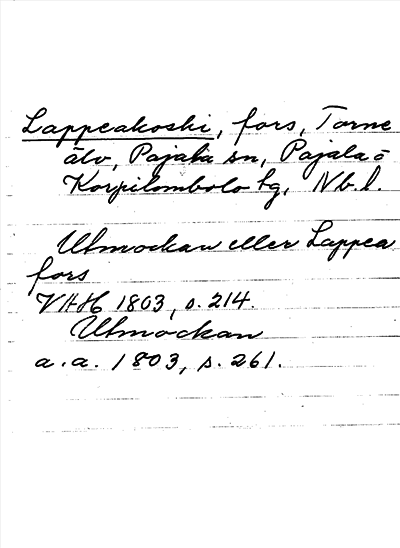 Lappeakoski, fors, Torne
älv, Pajala sn, Pajala o
Korpilombolo tg, Nb. l.
Ulmockan eller Lappea
fors
VHH 1803, s. 214.
Ulmockan
a.a. 1803, s. 261.